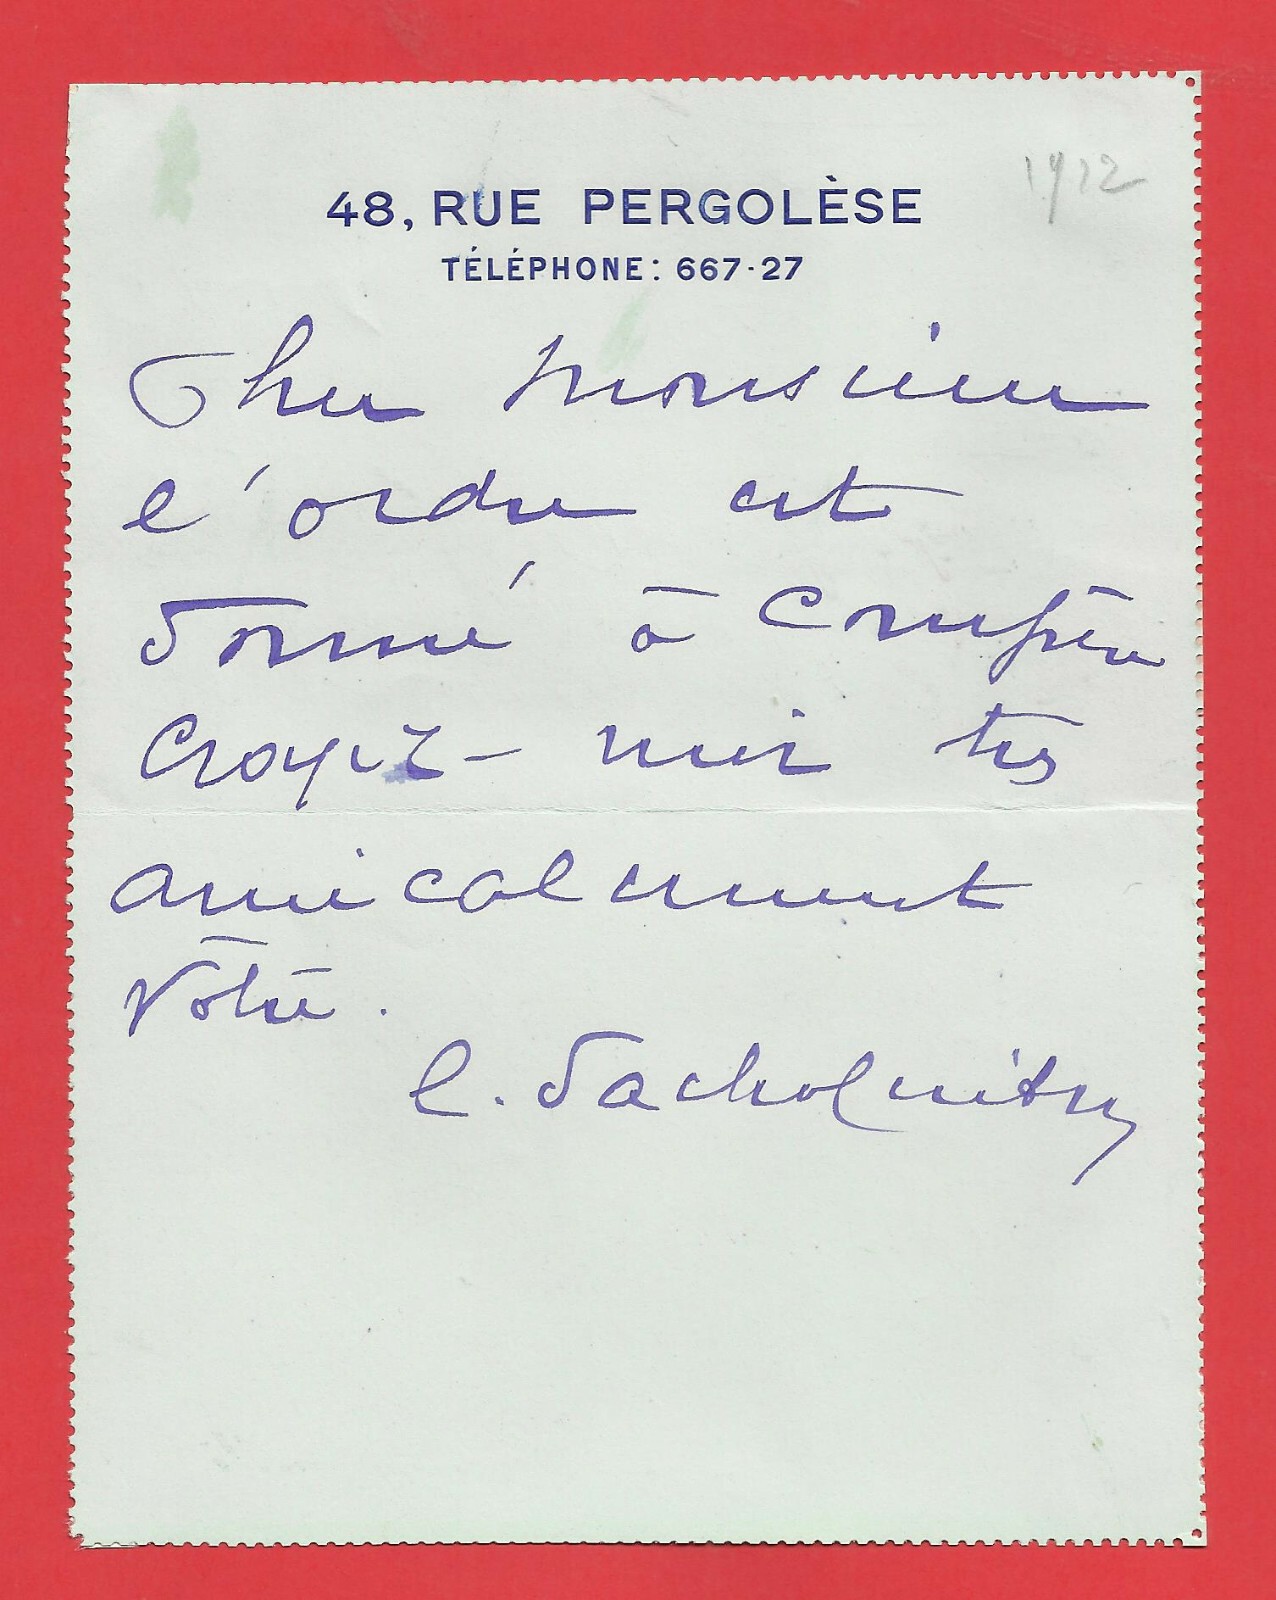 1912
48, RUE PERGOLÈSE
TÉLÉPHONE: 667-27
Cher Monsieur
l'ordre est
donné à Compère
Croyez-moi très
amicalement
Vôtre.
C. Sacha Guitry